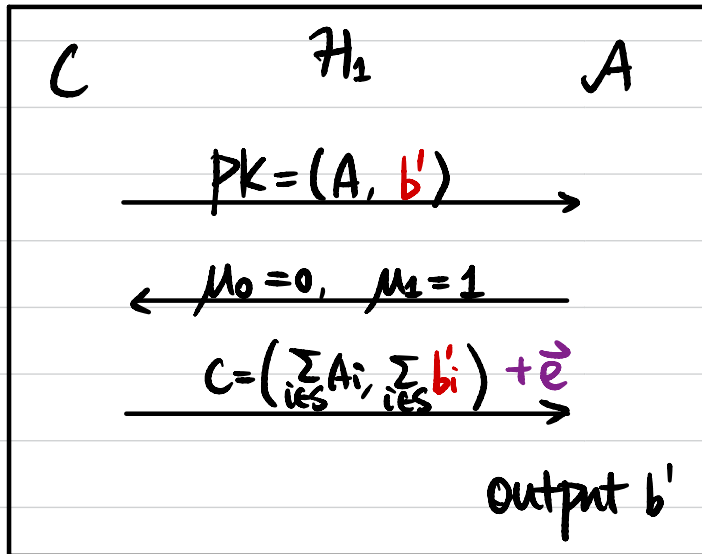 C H₁ A
PK = (A, b')
μ₀ = 0, μ₁ = 1
C = (∑_{i∈S} Aᵢ, ∑_{i∈S} b'ᵢ) + e⃗
output b'